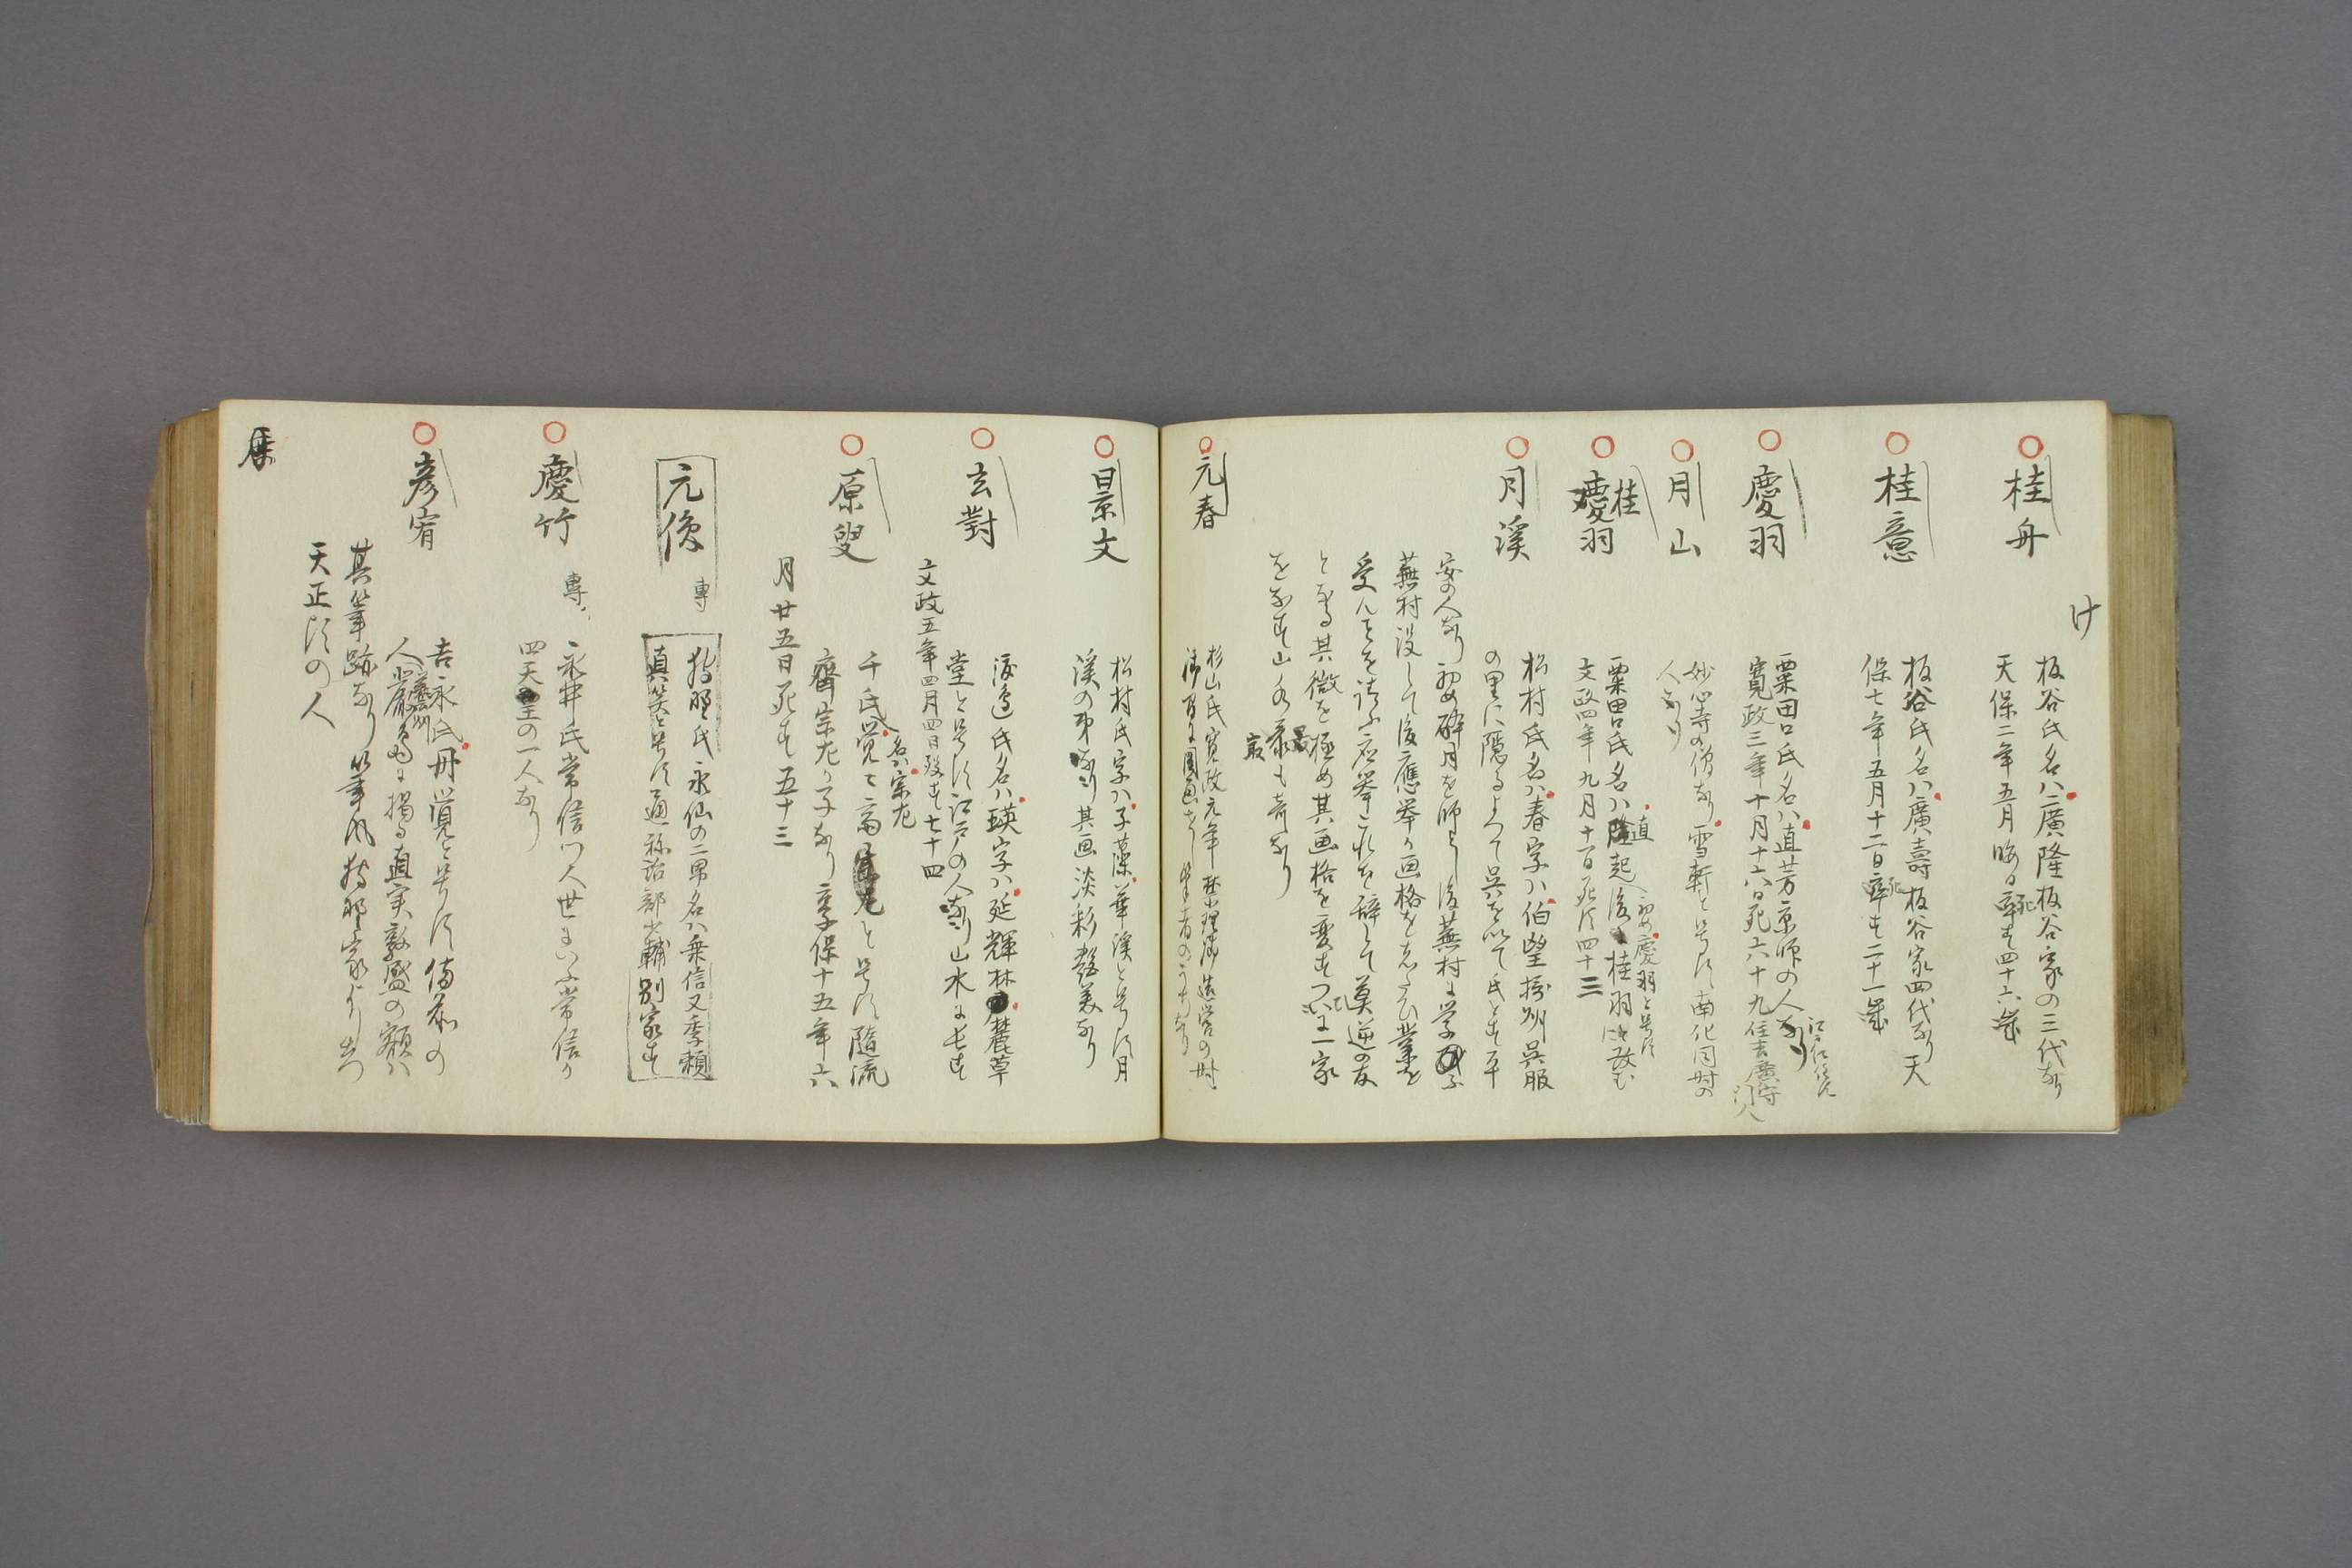 け
桂舟
板谷氏名ハ廣隆板谷家の三代なり
天保二年五月晦日死す四十六歳
桂意
板谷氏名ハ廣壽板谷家四代なり天
保七年五月十二日死す二十一歳
慶羽
粟田口氏名ハ直芳京師の人なり
寛政三年十月十六日死六十九住吉廣守
門人
月山
妙心寺の僧なり雪軒と号す南化同時の
人なり
桂羽
粟田口氏名ハ直起初め慶羽と号す後桂羽に改む
文政四年九月十一日死す四十三
月溪
松村氏名ハ春字ハ伯望摂州呉服
の里に隠るよつて呉を以て氏とす平
安の人なり初め酔月を師とし後蕪村に学ふ
蕪村没して後應挙か画格をしたひ業を
受んことを請ふ応挙これを辞して莫逆の友
となる其微を極め其画格を変すつひに一家
をなす山水最も奇なり
元春
杉山氏寛政元年禁理御造営の時
景文
松村氏字ハ子藻華溪と号す月
溪の弟なり其画淡彩発美なり
玄對
渡邊氏名ハ瑛字ハ延輝林麓草
堂と号す江戸の人なり山水に長す
文政五年四月四日歿す七十四
原叟
千氏名ハ宗左覚々斎と号す随流
齋宗左か子なり享保十五年六
月廿五日死す五十三
元俊 専
狩野氏永仙の二男名ハ乗信又季頼
真笑と号す通称治部少輔別家す
慶竹 専
永井氏常信門人世にいふ常信か
四天王の一人なり
彦宥
吉永氏丹覚と号す備前の
人藝州嚴島に掲る直実敦盛の額ハ
其筆跡なり筆風狩野家より出つ
天正頃の人